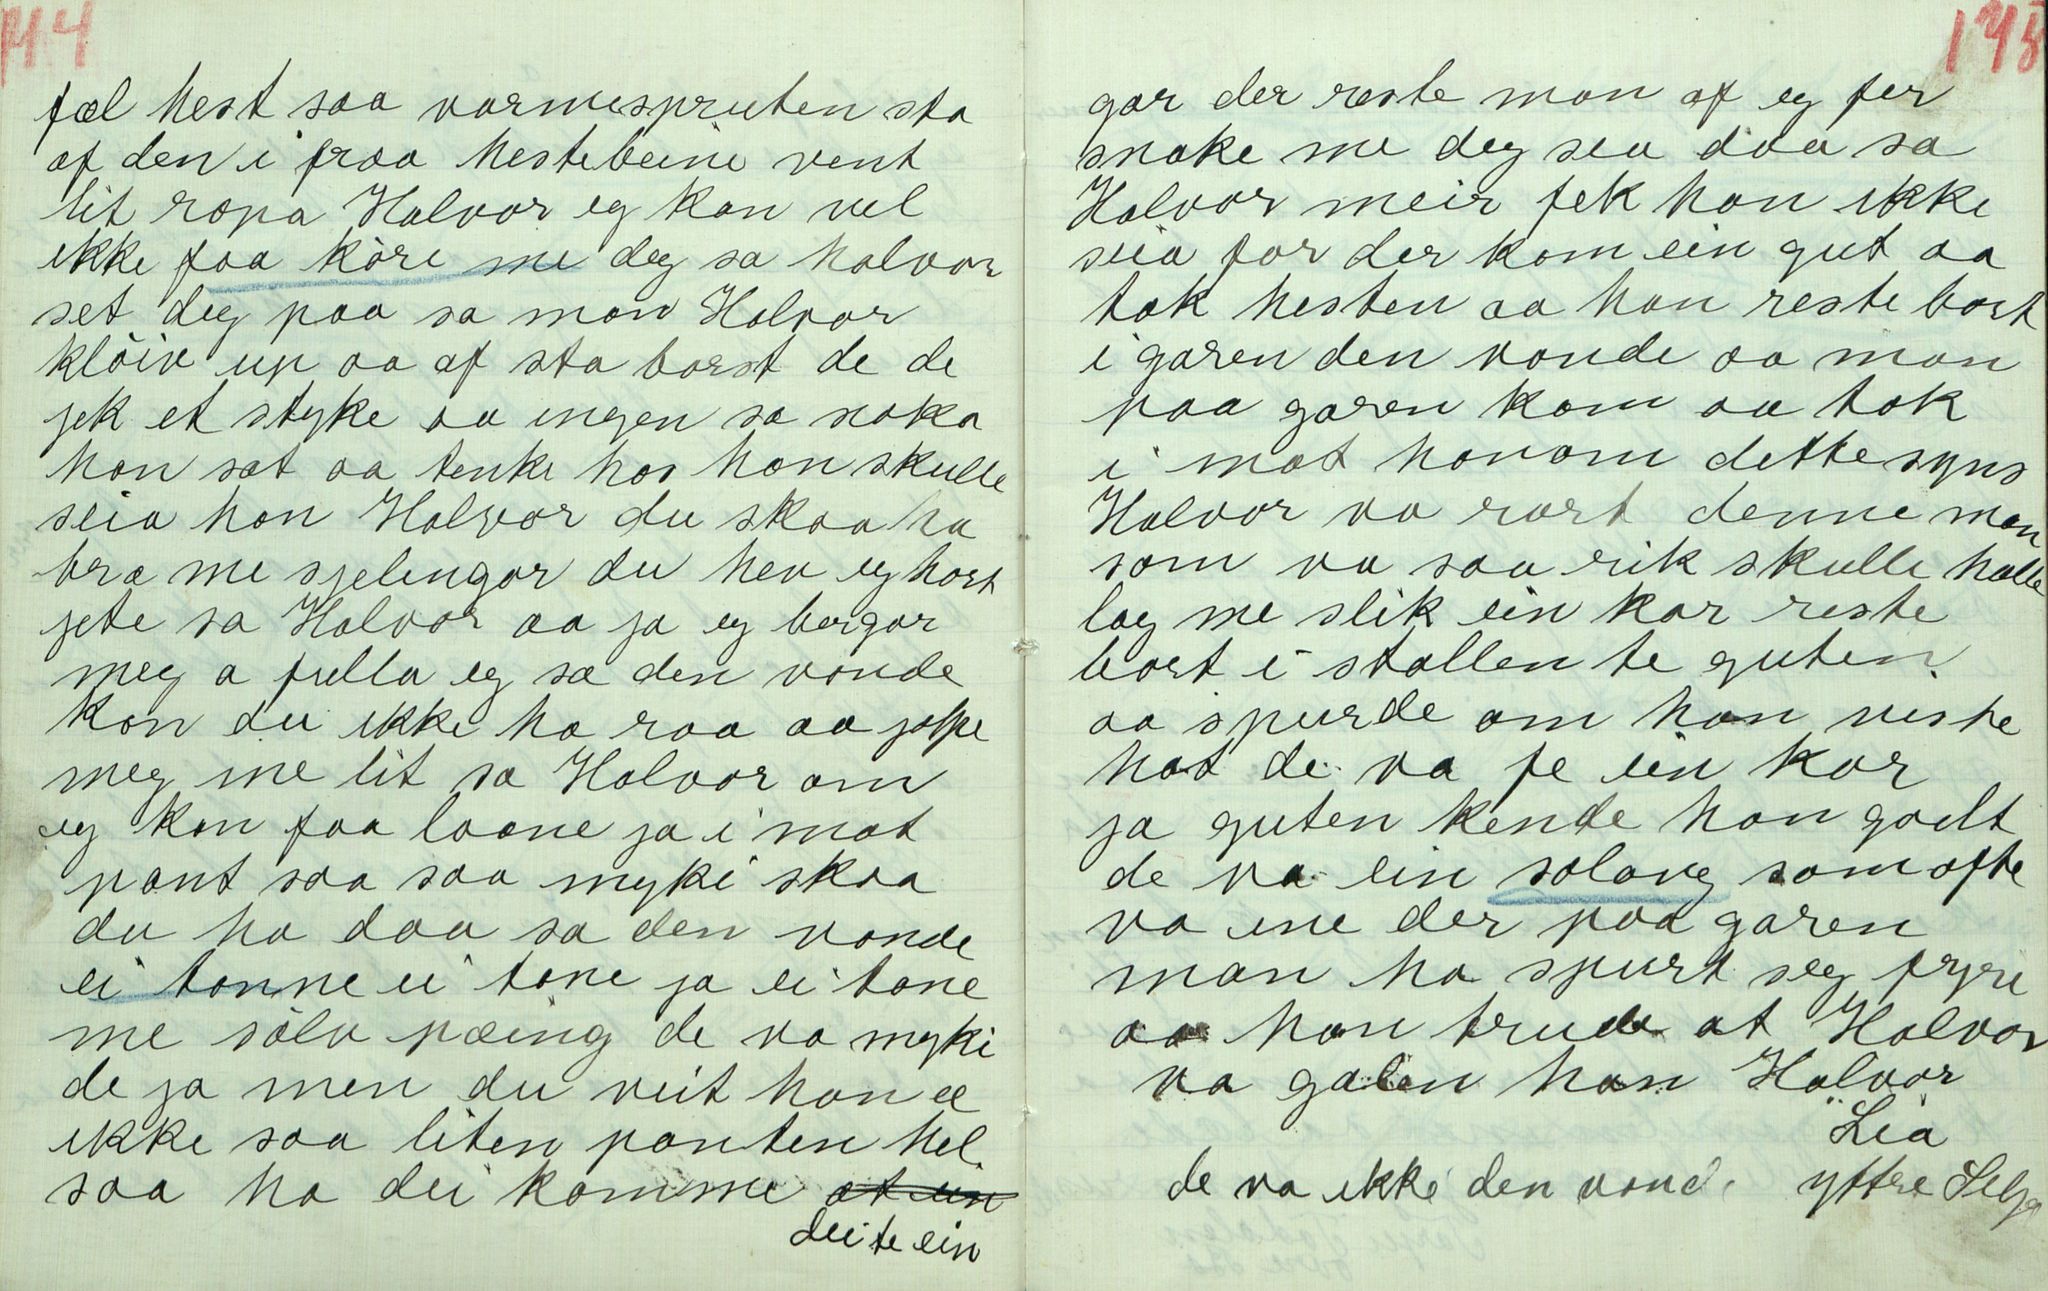 144
fæl hest saa varmespruten sta
af den i fraa hestebeine vent
lit ropa Halvor eg kan vel
ikke faa köre me deg sa halvor
set deg paa sa man Halvor
klöiv up aa af sta barst de de
jek et styke aa ingen sa noka
han sat aa tenke hos han skulle
seia han Halvor du skaa ha
bra me sjelingar du hev eg hort
jete sa Halvor aa ja eg bergar
meg a fulla eg sa den vonde
kan du ikke ha raa aa jolpe
meg me lit sa Halvor om
eg kan faa laane ja i mot
pant saa saa myki skaa
du ha daa sa den vonde
ei tonne ei tone ja ei tone
me sölv pæing de va myki
de ja men du veit han æ
ikke saa liten panten hel
saa ha dei komme at ein
dei te ein
145
gar der reste man af eg fer
snake me deg sea daa sa
Halvor meir fek han ikke
seia for der kom ein gut aa
tok hesten aa han reste bort
i garen den vonde aa man
paa garen kom aa tok
i mot honom dette syns
Halvor va rart denne man
som va saa rik skulle halle
lag me slik ein kar reste
bort i stallen te guten
aa spurde om han viste
hot de va fe ein kar
ja guten kende han godt
de va ein solaug som ofte
va ine der paa garen
man ha spurt seg fyre
aa han trude at Halvor
va galen han Halvor
Lia
de va ikke den vonde yttre Selja